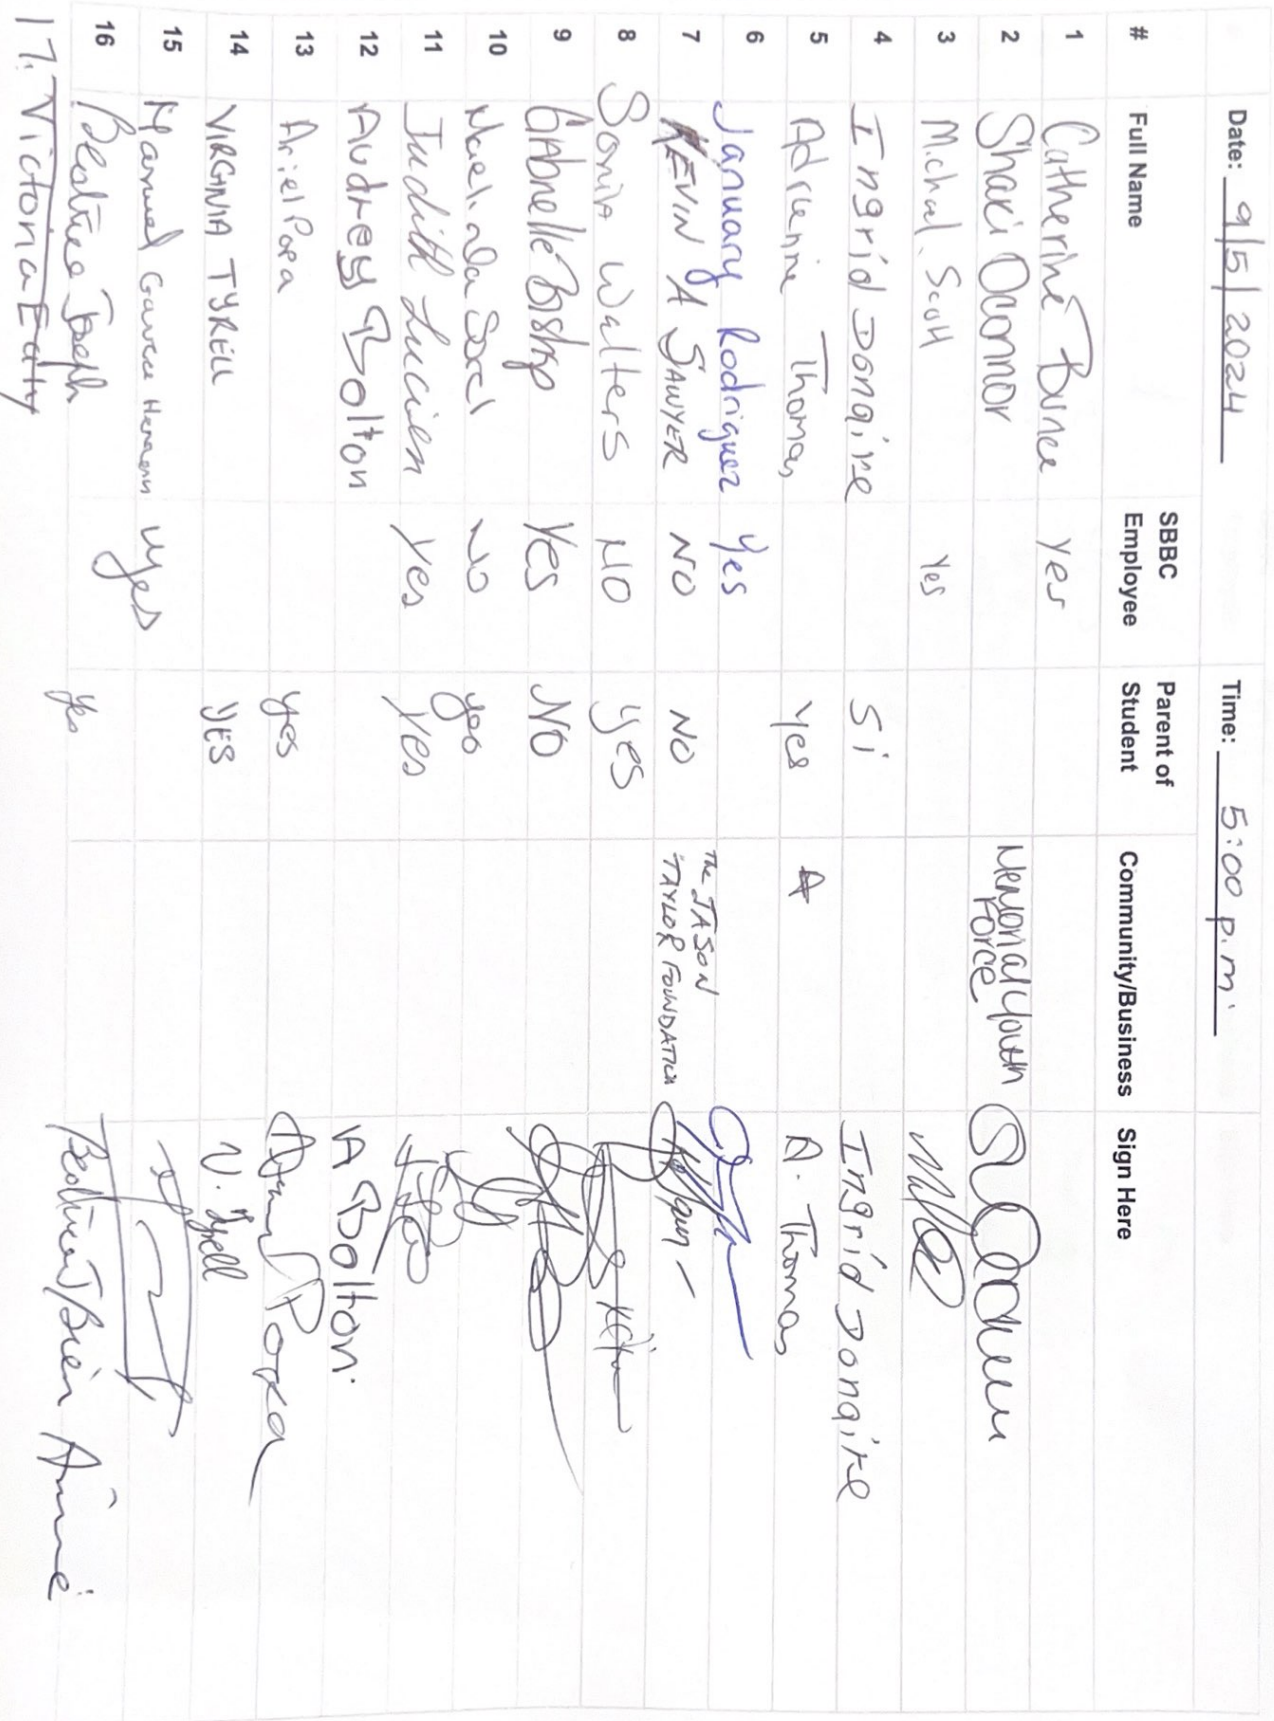 Date: 9/5/2024 Time: 5:00 p.m.
# Full Name SBBC Employee Parent of Student Community/Business Sign Here
1 Catherine yes
2 Shaki Oconnor Memorial Youth Force
3 Michael Scott Yes
4 Ingrid Donaire Si Ingrid Donaire
5 Adrienne Thomas Yes A. Thomas
6 January Rodriguez Yes
7 KEVIN A SAWYER NO NO The JASON TAYLOR FOUNDATION
8 Sonia Walters NO Yes
9 Gabrielle Bishop Yes NO
10 No yes
11 Judith Lucien Yes Yes
12 Audrey Bolton A Bolton.
13 Ariel Poza yes Ariel Poza
14 VIRGINIA TYRELL YES V. Tyrell
15 Manuel yes
16 Beatrice Joseph Yes
17. Victoria